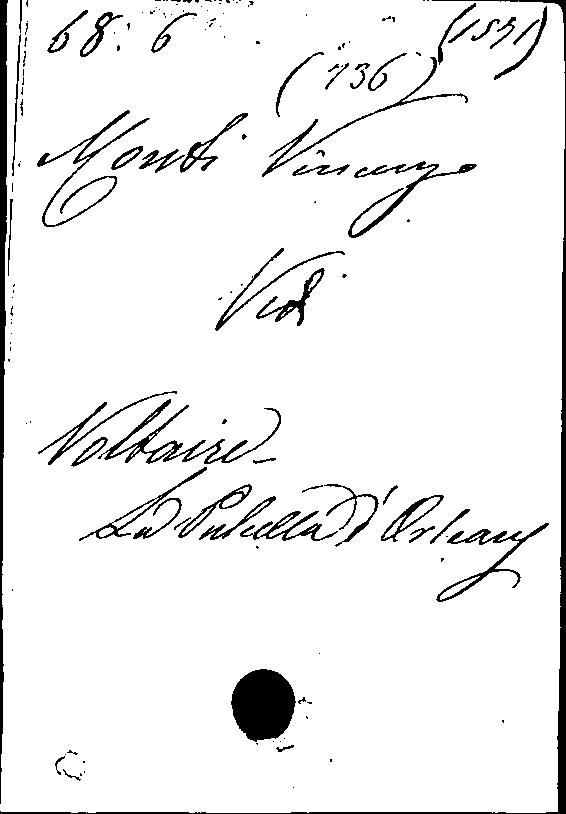 68. 6 (1531)
(736)
Monti Vincenzo
Vidi
Voltaire -
La Pulcella d'Orleans